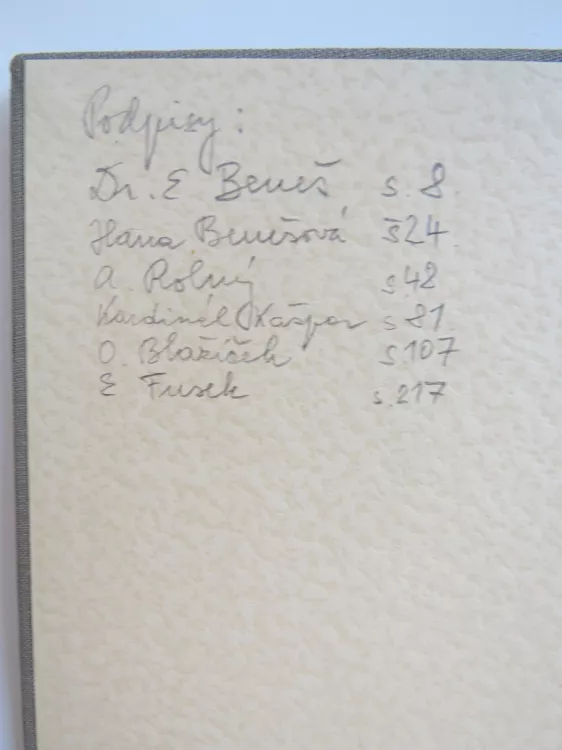 Podpisy:
Dr. E Beneš s. 8.
Hana Benešová s 24.
A. Rolný s 42
Kardinál Kašpar s 81
O. Blažíček s. 107
E Fusek s. 217